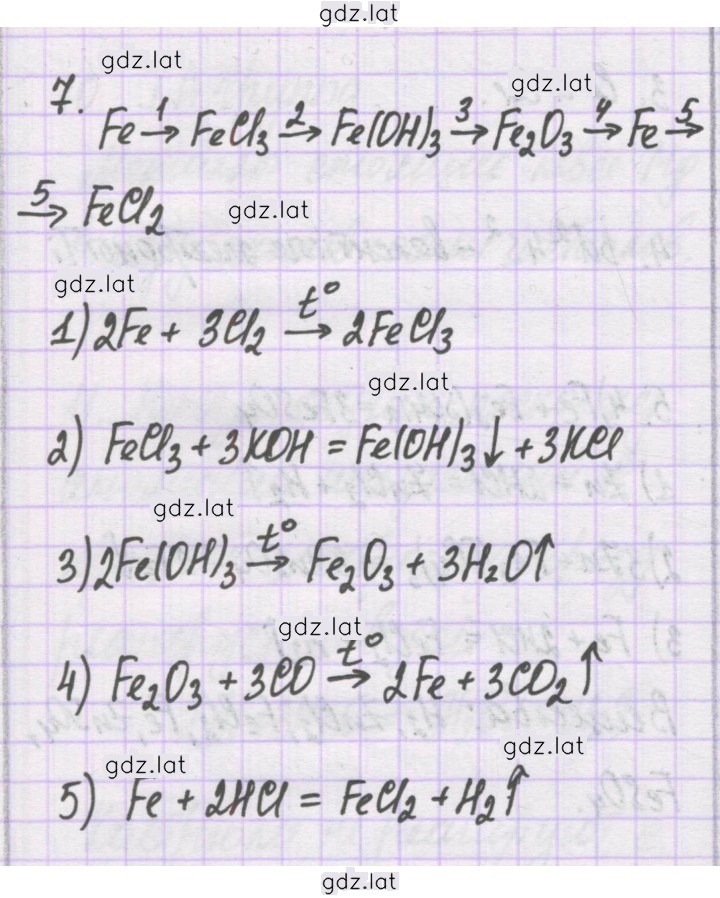 gdz.lat
gdz.lat
gdz.lat
7. Fe →¹ FeCl₃ →² Fe(OH)₃ →³ Fe₂O₃ →⁴ Fe →⁵
→⁵ FeCl₂
gdz.lat
gdz.lat
1) 2Fe + 3Cl₂ →t° 2FeCl₃
gdz.lat
2) FeCl₃ + 3KOH = Fe(OH)₃↓ + 3KCl
gdz.lat
3) 2Fe(OH)₃ →t° Fe₂O₃ + 3H₂O↑
gdz.lat
4) Fe₂O₃ + 3CO →t° 2Fe + 3CO₂↑
gdz.lat
gdz.lat
5) Fe + 2HCl = FeCl₂ + H₂↑
gdz.lat